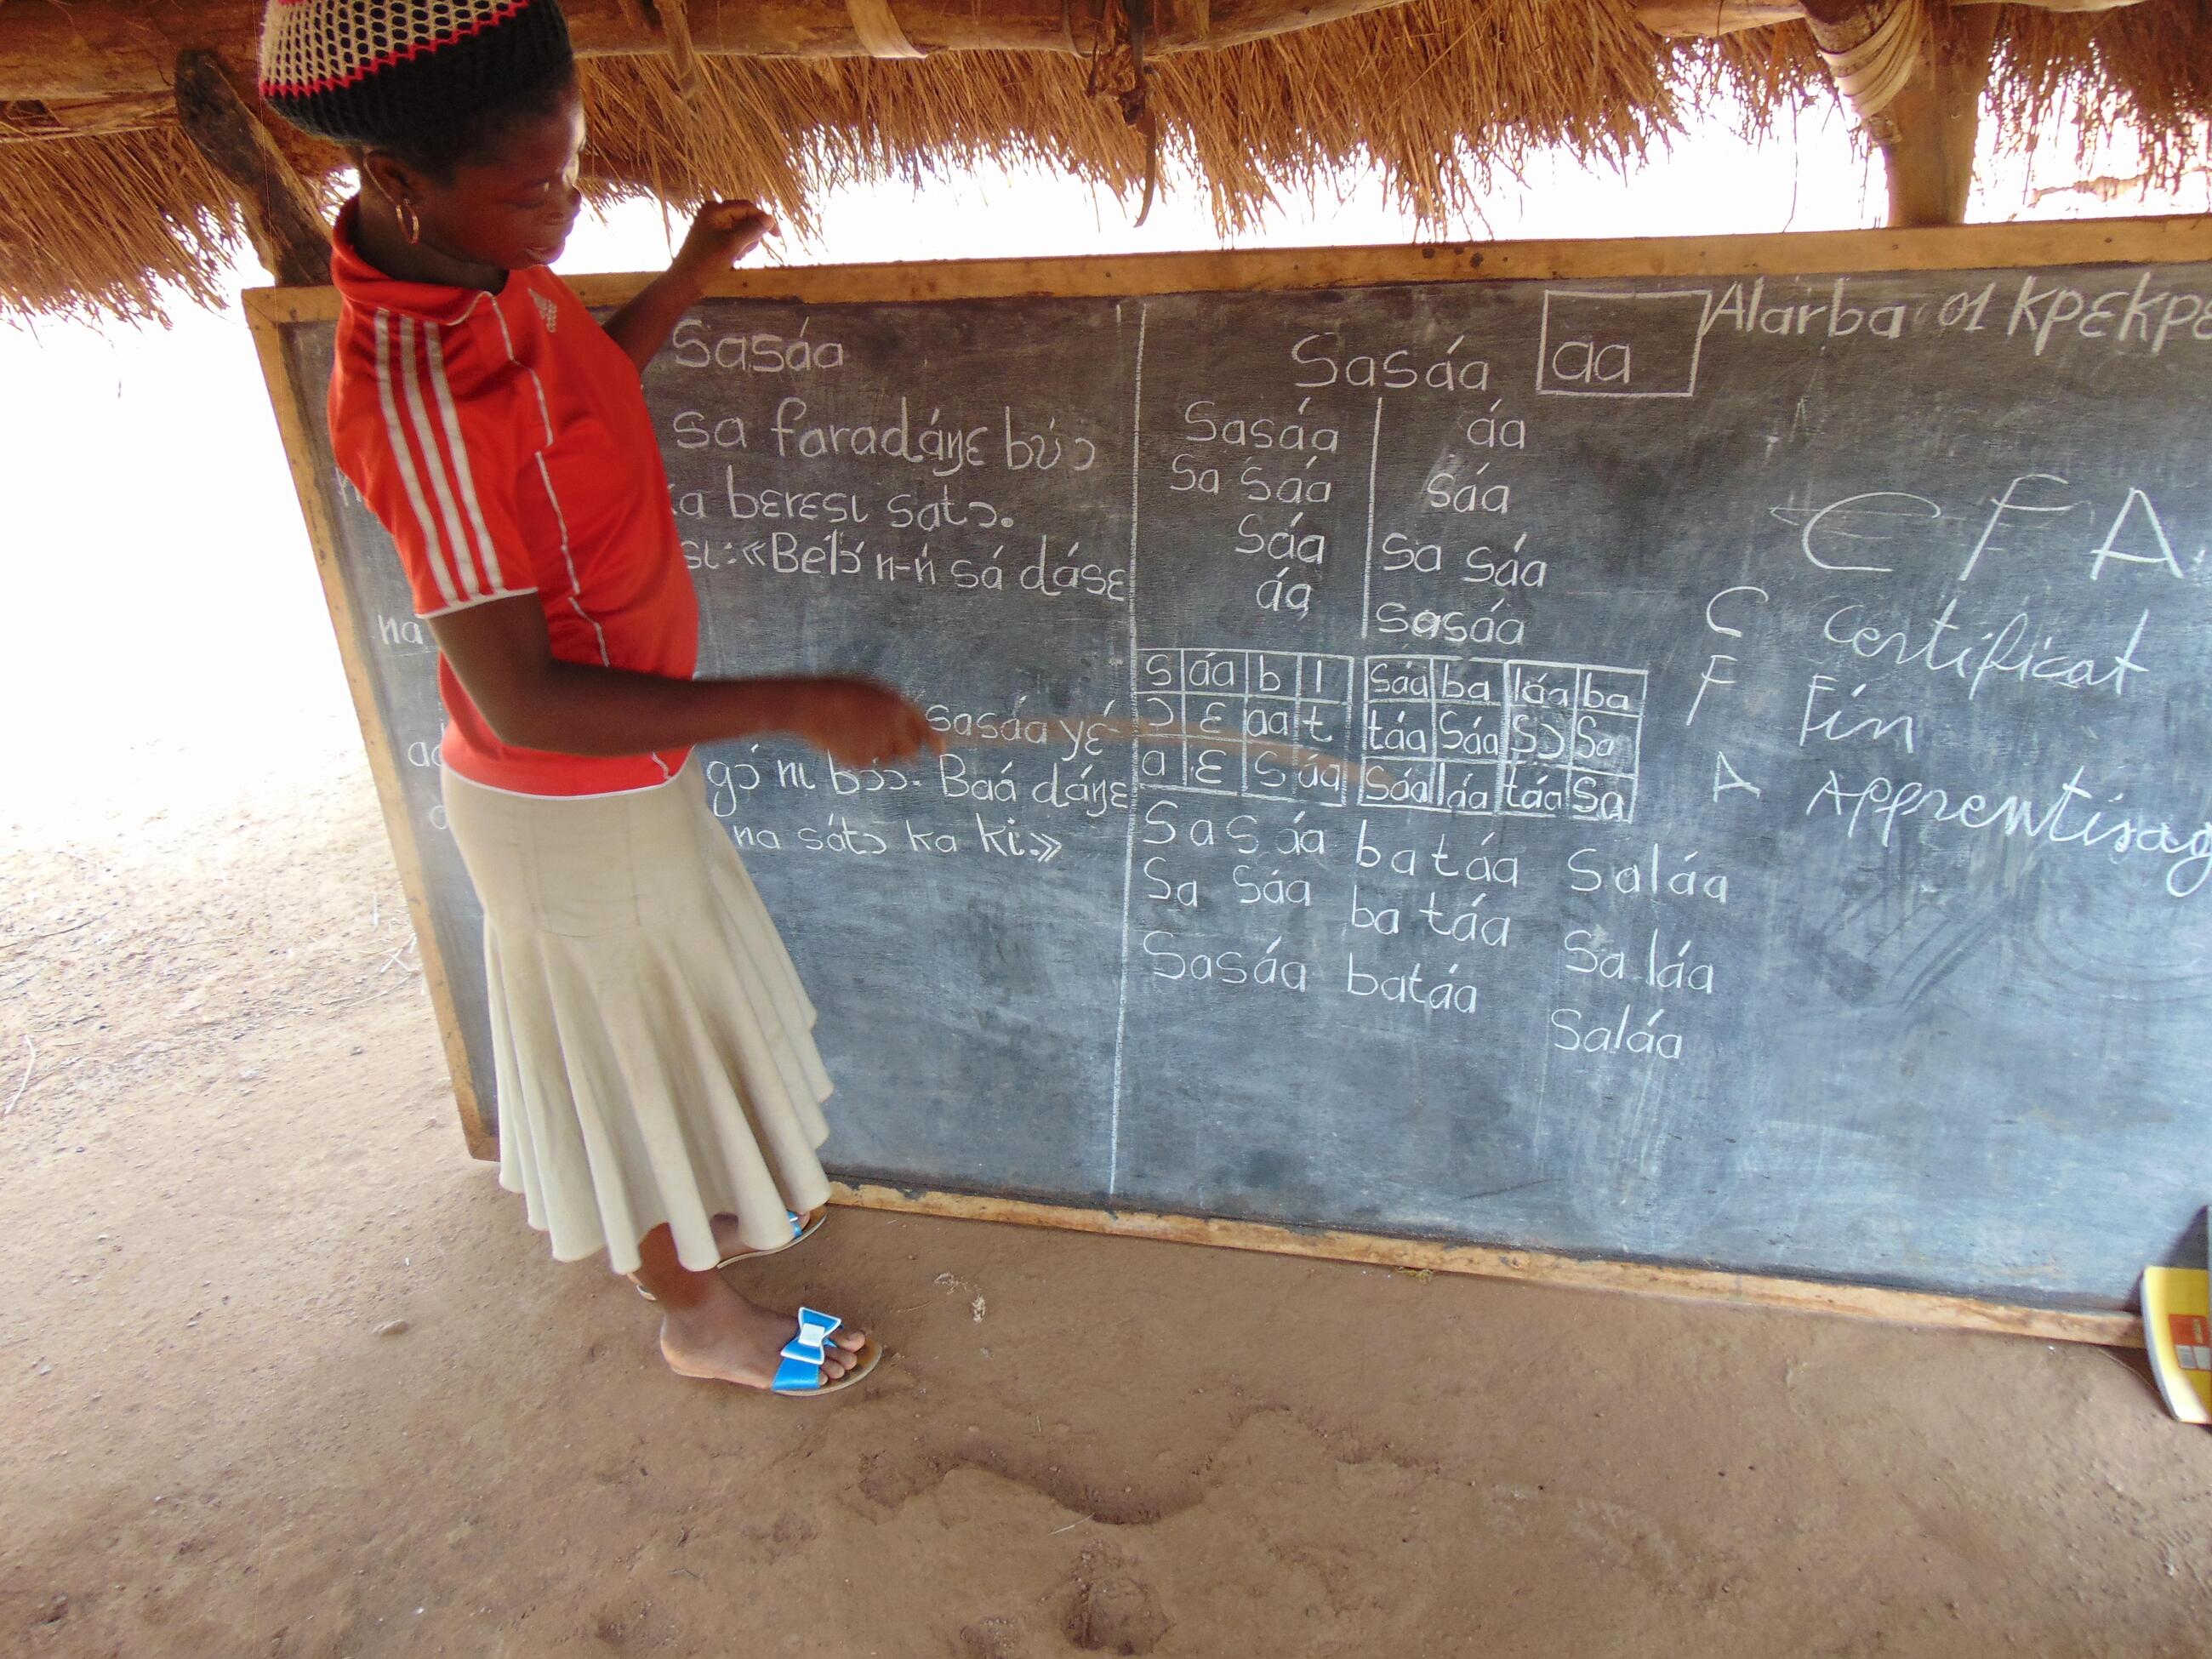 Sasáa
sa faradáŋɛ bʋ́ɔ
bɛrɛsɩ satɔ.
sɩ:«Bélɔ́ n-ń sá dásɛ
na
sasáa yɛ́
gɔ́ nɩ bɔ́ɔ. Baá dáŋɛ
na sátɔ ka ki.»
Sasáa aa
Sasáa áa
Sa sáa sáa
Sáa sa sáa
áa sasáa
s áa b l sáa ba láa ba
ɔ ɛ aa t táa sáa sɔ sa
a ɛ s áa sáa láa táa sa
Sasáa batáa Saláa
Sa sáa ba táa Sa láa
Sasáa batáa Saláa
Alarba 01
CFA
C Certificat
F Fin
A